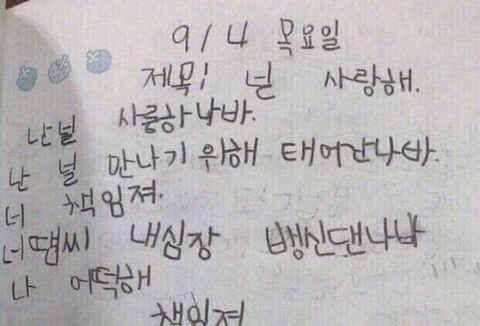 9/4 목요일
제목: 널 사랑해.
난널 사릉하나바.
난 널 만나기 위해 태어난나바.
너 책임져.
너땜씨 내심장 뱅신댄나바
나 어떡해
책임져